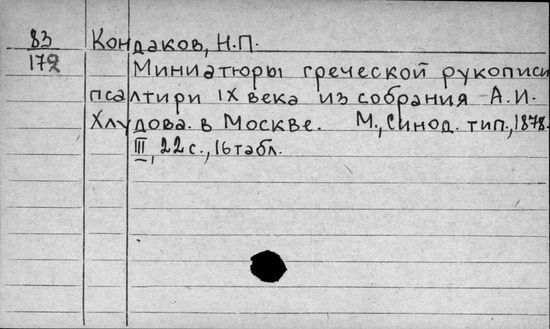 83 Кондаков, Н.П.
172 Миниатюры греческой рукописи
псалтири IX века из собрания А.И.
Хлудова. в Москве. М., Синод. тип., 1878.
III, 22 с., 16 табл.